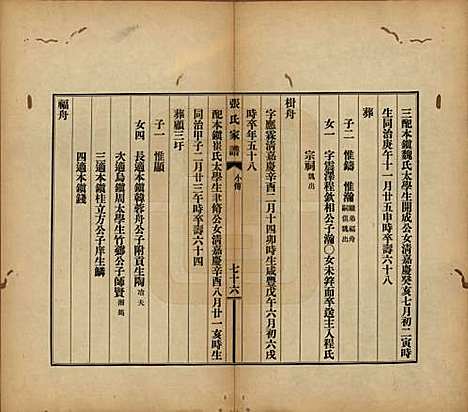 三配本鎭魏氏太學生開成公女清嘉慶癸亥七月初二寅時
生同治庚午十一月廿五申時卒壽六十八
葬
子二　惟鑄　惟瀚
女一　字震澤程欽相公子瀚〇女未笄而卒送主入程氏
宗祠魏出
樹舟
字應霖清嘉慶辛酉二月十四卯時生咸豐戊午六月初六戌
時卒年五十八
張氏家譜　小傳　七十六
配本鎭崔氏太學生聿脩公女清嘉慶辛酉八月廿一亥時生
同治甲子二月廿三午時卒壽六十四
葬顧三圩
子一　惟顯
女四　長適本鎭韓蓉舟公子附貢生陶
次適烏鎭周太學生竹薌公子師賢
三適本鎭桂立方公子庠生鱗
四適本鎭錢
福舟